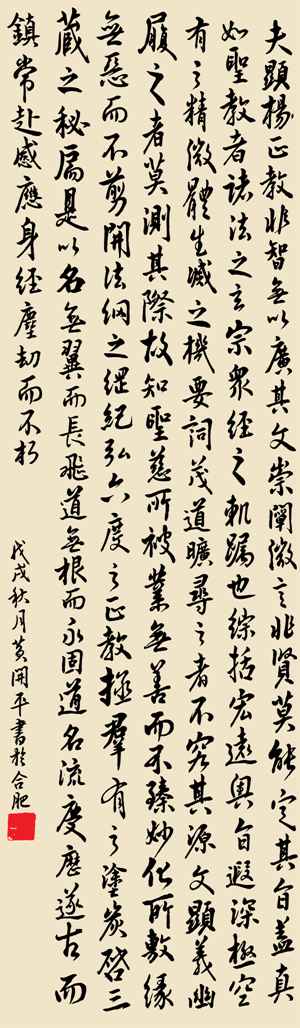 夫顯揚正教非智無以廣其文崇闡微言非賢莫能定其旨蓋真
如聖教者諸法之玄宗眾經之軌躅也綜括宏遠奧旨遐深極空
有之精微體生滅之機要詞茂道曠尋之者不究其源文顯義幽
履之者莫測其際故知聖慈所被業無善而不臻妙化所敷緣
無惡而不剪開法網之綱紀弘六度之正教拯羣有之塗炭啓三
藏之秘扃是以名無翼而長飛道無根而永固道名流慶歷遂古而
鎮常赴感應身經塵劫而不朽
戊戌秋月黄開平書於合肥